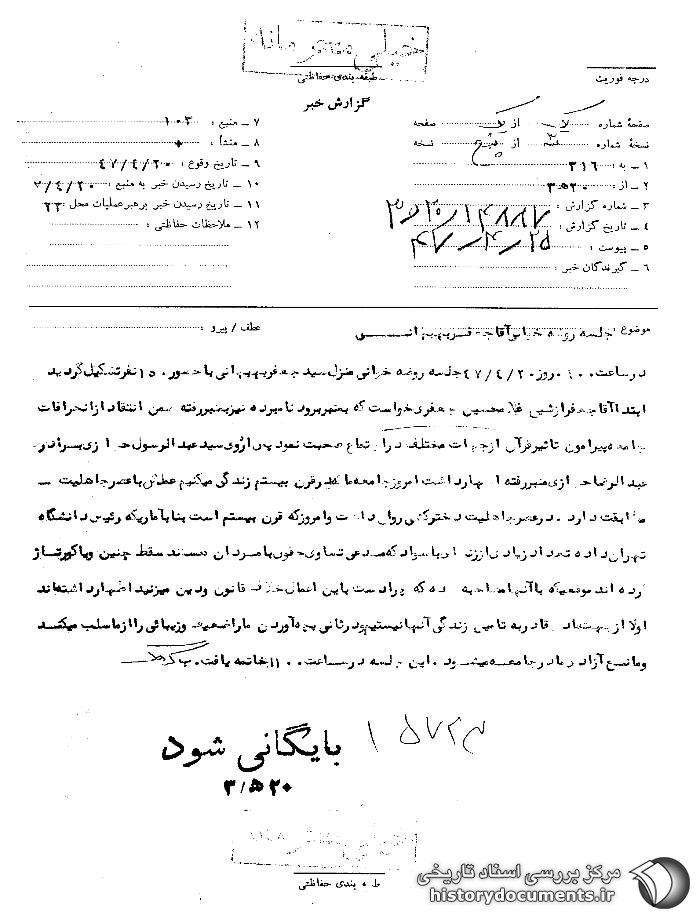 خیلی محرمانه
طبقه بندی حفاظتی
درجه فوریت
گزارش خبر
صفحهٔ شماره یک از یک صفحه
نسخهٔ شماره ۳ از پنج نسخه
۱ ـ به : ۳۱۶
۲ ـ از : ۲۰ ﻫ ۳
۳ ـ شماره گزارش :
۴ ـ تاریخ گزارش : ۴۷/۴/۲۵
۵ ـ پیوست :
۶ ـ گیرندگان خبر :
۷ ـ منبع : ۱۰۳
۸ ـ منشأ :
۹ ـ تاریخ وقوع : ۴۷/۴/۲۰
۱۰ ـ تاریخ رسیدن خبر به منبع : ۷/۴/۲۰
۱۱ ـ تاریخ رسیدن خبر برهبرعملیات محل : ۲۳
۱۲ ـ ملاحظات حفاظتی :
موضوع : جلسه روضه خوانی آقا
عطف / پیرو :
در ساعت روز ۴۷/۴/۲۰ جلسه روضه خوانی منزل سید جعفر بهبهانی با حضور ۱۵۰ نفر تشکیل گردید
ابتدا آقا جعفر از شیخ غلامحسین جعفری خواست که بمنبر برود نامبرده نیز بمنبر رفته ضمن انتقاد از انحرافات
جامعه پیرامون تاثیر قرآن از جهات مختلف در اجتماع صحبت نمود پس از وی سید عبدالرسول حجازی برادر
عبدالرضا حجازی منبر رفته اظهار داشت امروز جامعه ما که در قرن بیستم زندگی میکنیم عملش با عصر جاهلیت ـ
مطابقت دارد . در عصر جاهلیت دختر کشی رواج داشت و امروز که قرن بیستم است بنا بآماریکه رئیس دانشگاه
تهران داده تعداد زیادی از زنان با سواد که مدعی تساوی حقوق با مردان هستند سقط جنین و یا کورتاژ
کرده اند موقعیکه با آنها مصاحبه شده که چرا دست باین اعمال خلاف قانون و دین میزنید اظهار داشته اند
اولا از جهت قادر به تامین زندگی آنها نیستیم و در ثانی بچه آوردن ما را ضعیف و زیبائی را از ما سلب میکند
و مانع آزادی ما در جامعه میشود . این جلسه در ساعت ۱۱۰۰ خاتمه یافت .
۱۵۷۲۳
بایگانی شود
۲۰ ﻫ/۳
خیلی محرمانه
طبقه بندی حفاظتی
مرکز بررسی اسناد تاریخی
historydocuments.ir